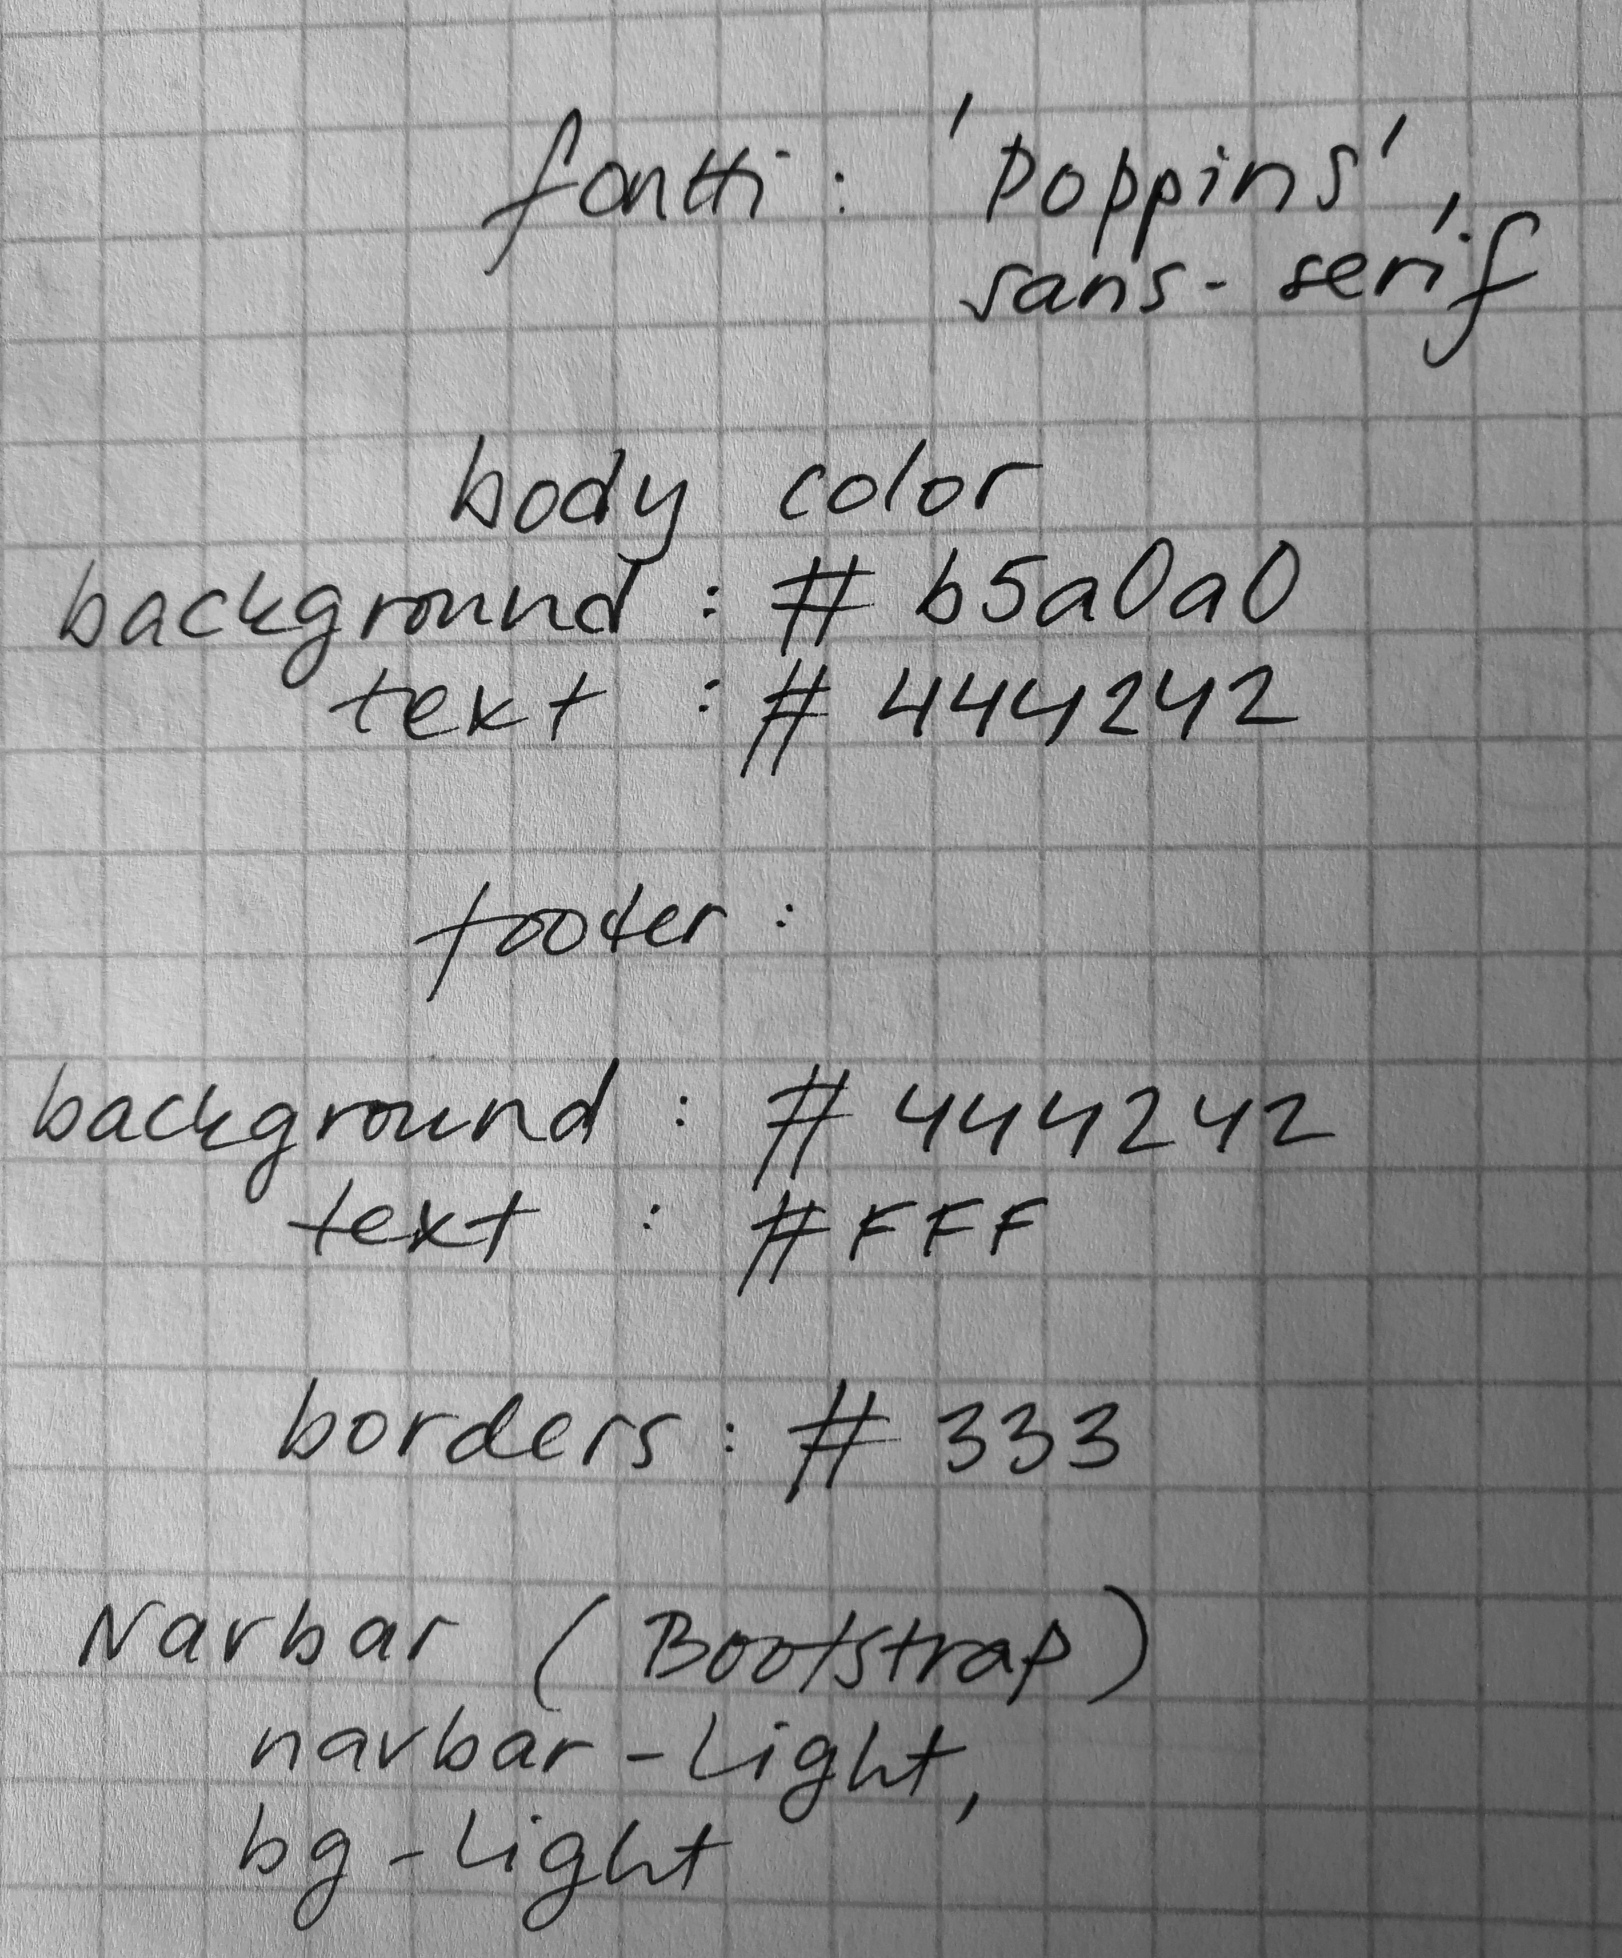 fontti: 'Poppins',
sans-serif
body color
background: #b5a0a0
text: #444242
footer:
background: #444242
text: #FFF
borders: #333
Navbar (Bootstrap)
navbar-light,
bg-light